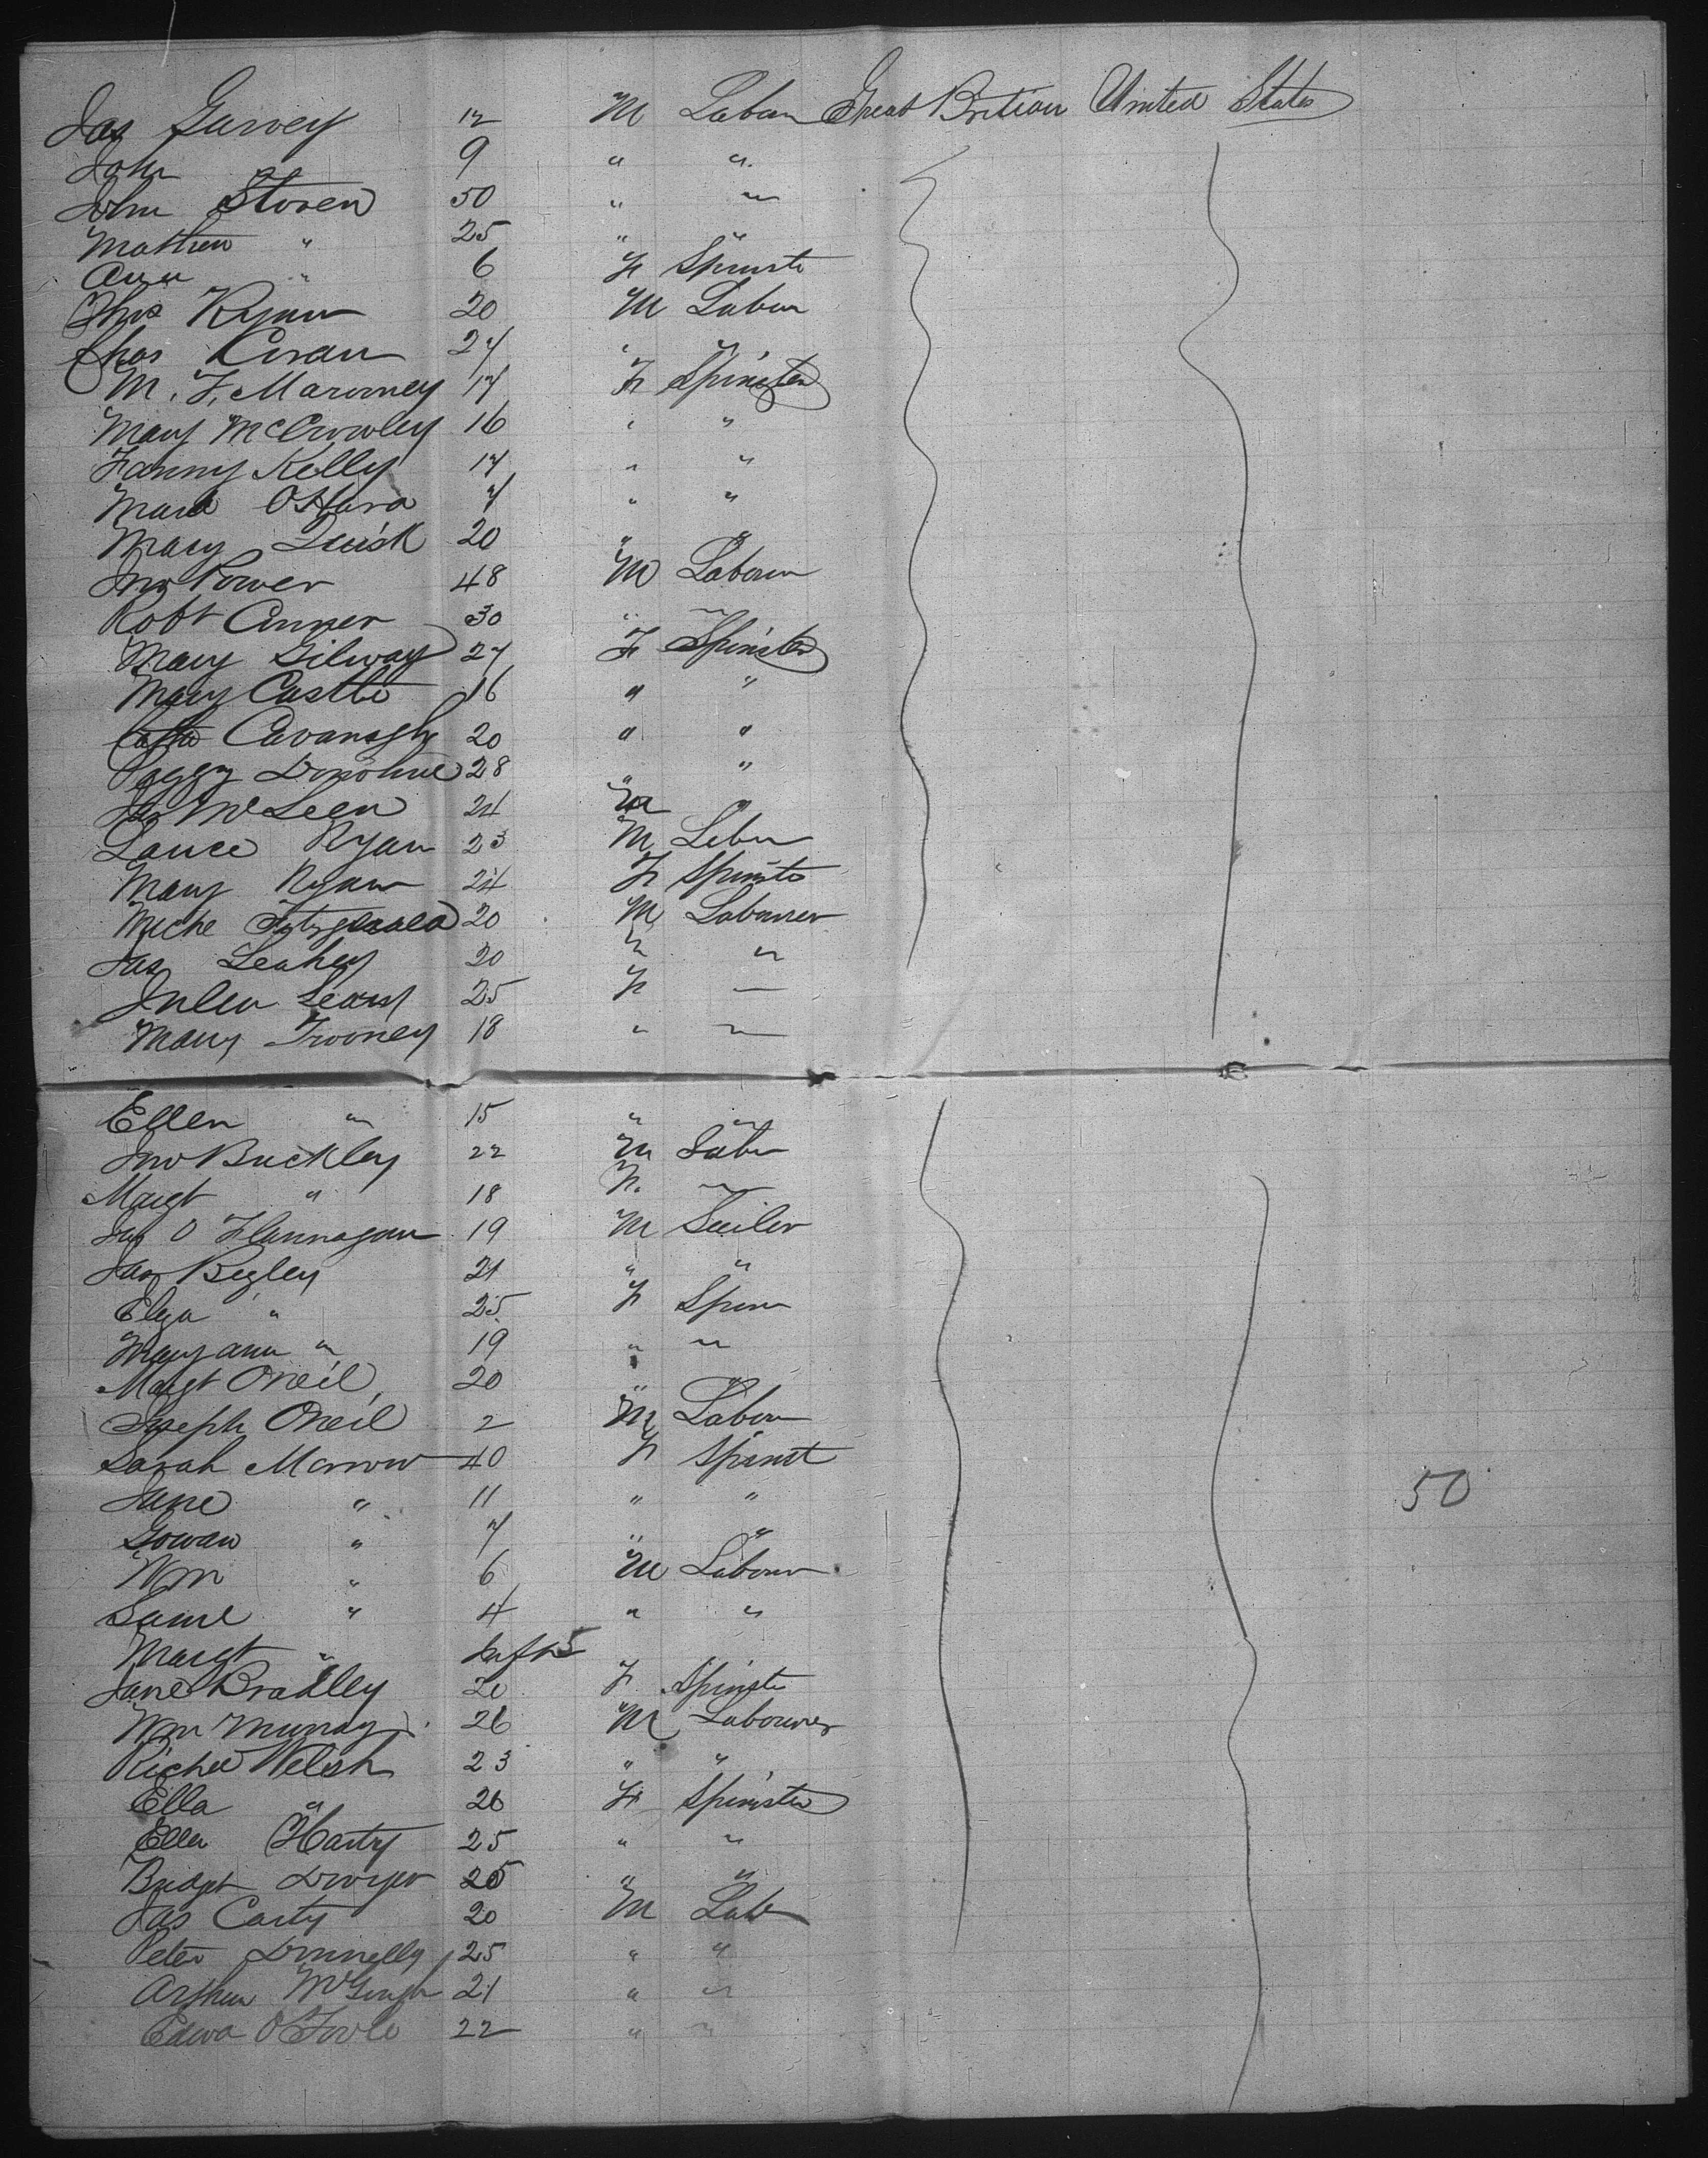 Jas Garvey 12 M Labour Great Britian United States
John 9 " "
John Storen 50 " "
Mathew " 25 " "
Ann " 6 F Spinste
Thos Ryan 20 M Labour
Chas Kiran 27 " "
M. F. Marooney 17 F Spinster
Mary McCrowley 16 " "
Fanny Kelly 17 " "
Maria OHara 7 " "
Mary Quirk 20 " "
Jno Power 48 M Labour
Robt Conner 30 " "
Mary Gilway 27 F Spinster
Mary Castle 16 " "
Cavanagh 20 " "
Peggy Donohue 28 " "
McLeen 24 "
Lance Ryan 23 M Labr
Mary Ryan 24 F Spinste
Miche Fitzgerald 20 M Labourer
Jas Leahey 20 " "
Julia Leary 25 F "
Mary Twoney 18 " "
Ellen " 15 " "
Jno Buckley 22 M Labr
Margt " 18 F. "
Jas O Flannagan 19 M
Jas Begley 21 " "
Eliza " 25 F Spin
Mary ann " 19 " "
Margt Oneil 20 " "
Joseph Oneil 2 M Labour
Sarah Morrow 40 F Spinst
Jane " 11 " "
Gowan " 7 " "
Wm " 6 M Labour
Saml " 4 " "
Margt " Inft 5
Jane Bradley 20 F Spinste
Wm Murray 26 M Labourer
Richd Welsh 23 " "
Ella " 20 F Spinster
Ellen Harty 25 " "
Bridget Dwyer 25 " "
Jas Carty 20 M Lab
Peter Donnelly 25 " "
Arthur McGough 21 " "
Edwd O Toole 22 " "
50